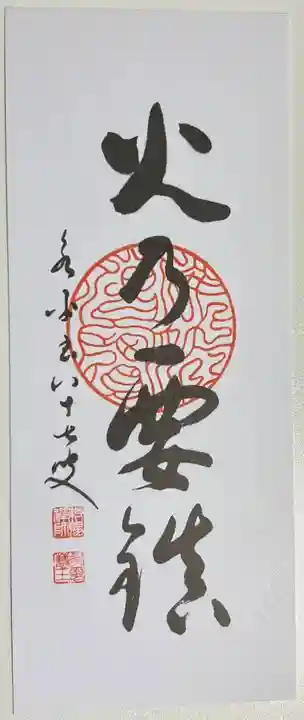 火乃要鎮
永平八十七叟